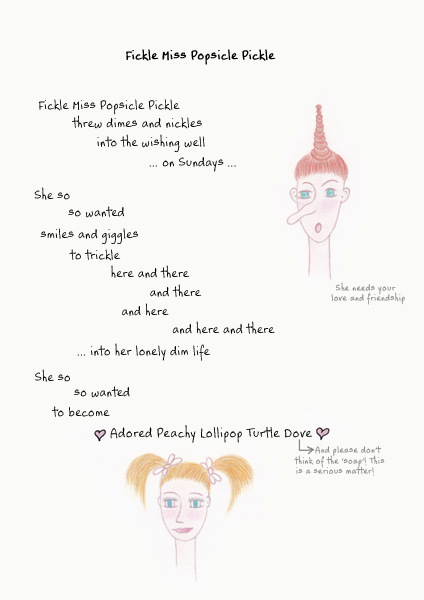 Fickle Miss Popsicle Pickle
Fickle Miss Popsicle Pickle
threw dimes and nickles
into the wishing well
... on Sundays ...
She so
so wanted
smiles and giggles
to trickle
here and there
and there
and here
and here and there
... into her lonely dim life
She needs your
love and friendship
She so
so wanted
to become
Adored Peachy Lollipop Turtle Dove
And please don't
think of the 'soap'! This
is a serious matter!